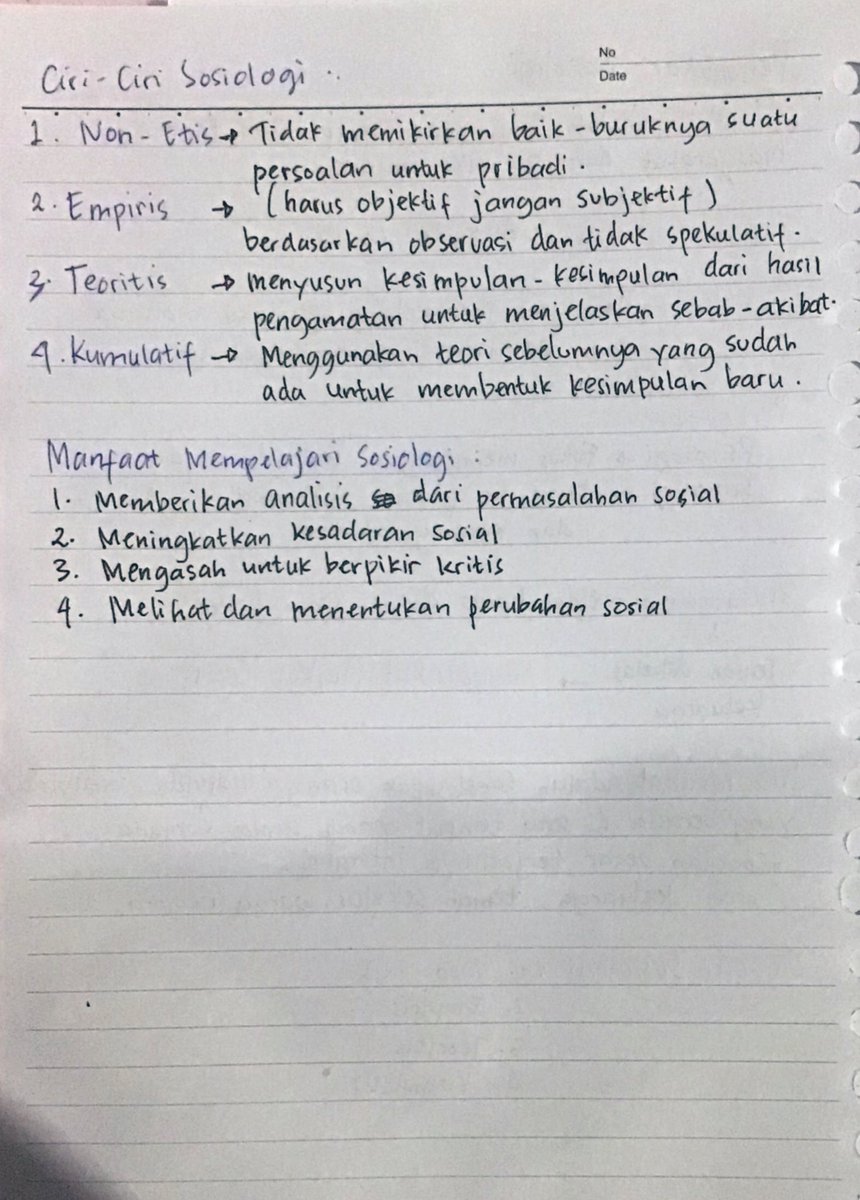 No
Date
Ciri-Ciri Sosiologi :
1. Non-Etis → Tidak memikirkan baik-buruknya suatu
persoalan untuk pribadi.
2. Empiris → (harus objektif jangan subjektif)
berdasarkan observasi dan tidak spekulatif.
3. Teoritis → menyusun kesimpulan-kesimpulan dari hasil
pengamatan untuk menjelaskan sebab-akibat.
4. Kumulatif → Menggunakan teori sebelumnya yang sudah
ada untuk membentuk kesimpulan baru.
Manfaat Mempelajari Sosiologi :
1. Memberikan analisis dari permasalahan sosial
2. Meningkatkan kesadaran sosial
3. Mengasah untuk berpikir kritis
4. Melihat dan menentukan perubahan sosial